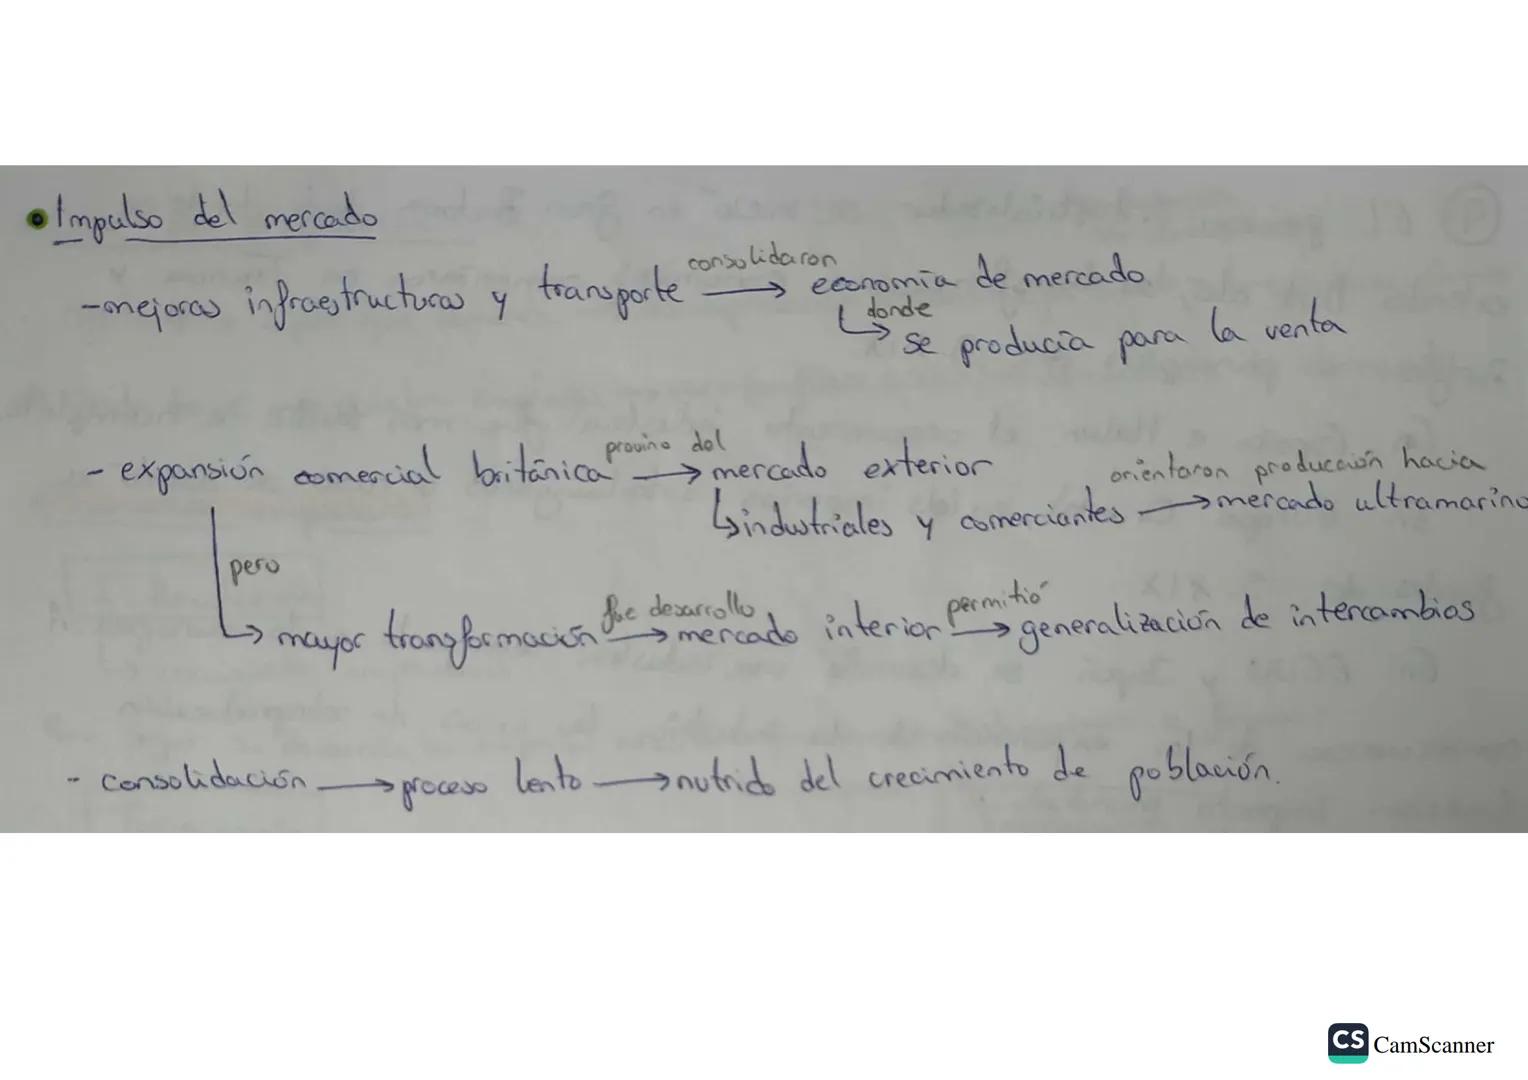 • Impulso del mercado
consolidaron
-mejoras infraestructuras y transporte → economía de mercado.
donde
↳ se producía para la venta
provino del
- expansión comercial británica → mercado exterior
orientaron producción hacia
↳ industriales y comerciantes → mercado ultramarino
pero
fue desarrollo permitió
↳ mayor transformación → mercado interior → generalización de intercambios
- consolidación → proceso lento → nutrido del crecimiento de población.
CS CamScanner